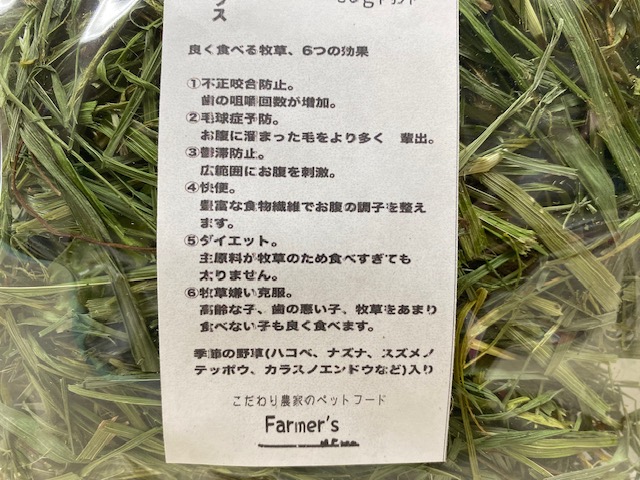 ス
良く食べる牧草、6つの効果
①不正咬合防止。
歯の咀嚼回数が増加。
②毛球症予防。
お腹に溜まった毛をより多く 輩出。
③鬱滞防止。
広範囲にお腹を刺激。
④快便。
豊富な食物繊維でお腹の調子を整え
ます。
⑤ダイエット。
主原料が牧草のため食べすぎても
太りません。
⑥牧草嫌い克服。
高齢な子、歯の悪い子、牧草をあまり
食べない子も良く食べます。
季節の野草(ハコベ、ナズナ、スズメノ
テッポウ、カラスノエンドウなど)入り
こだわり農家のペットフード
Farmer's